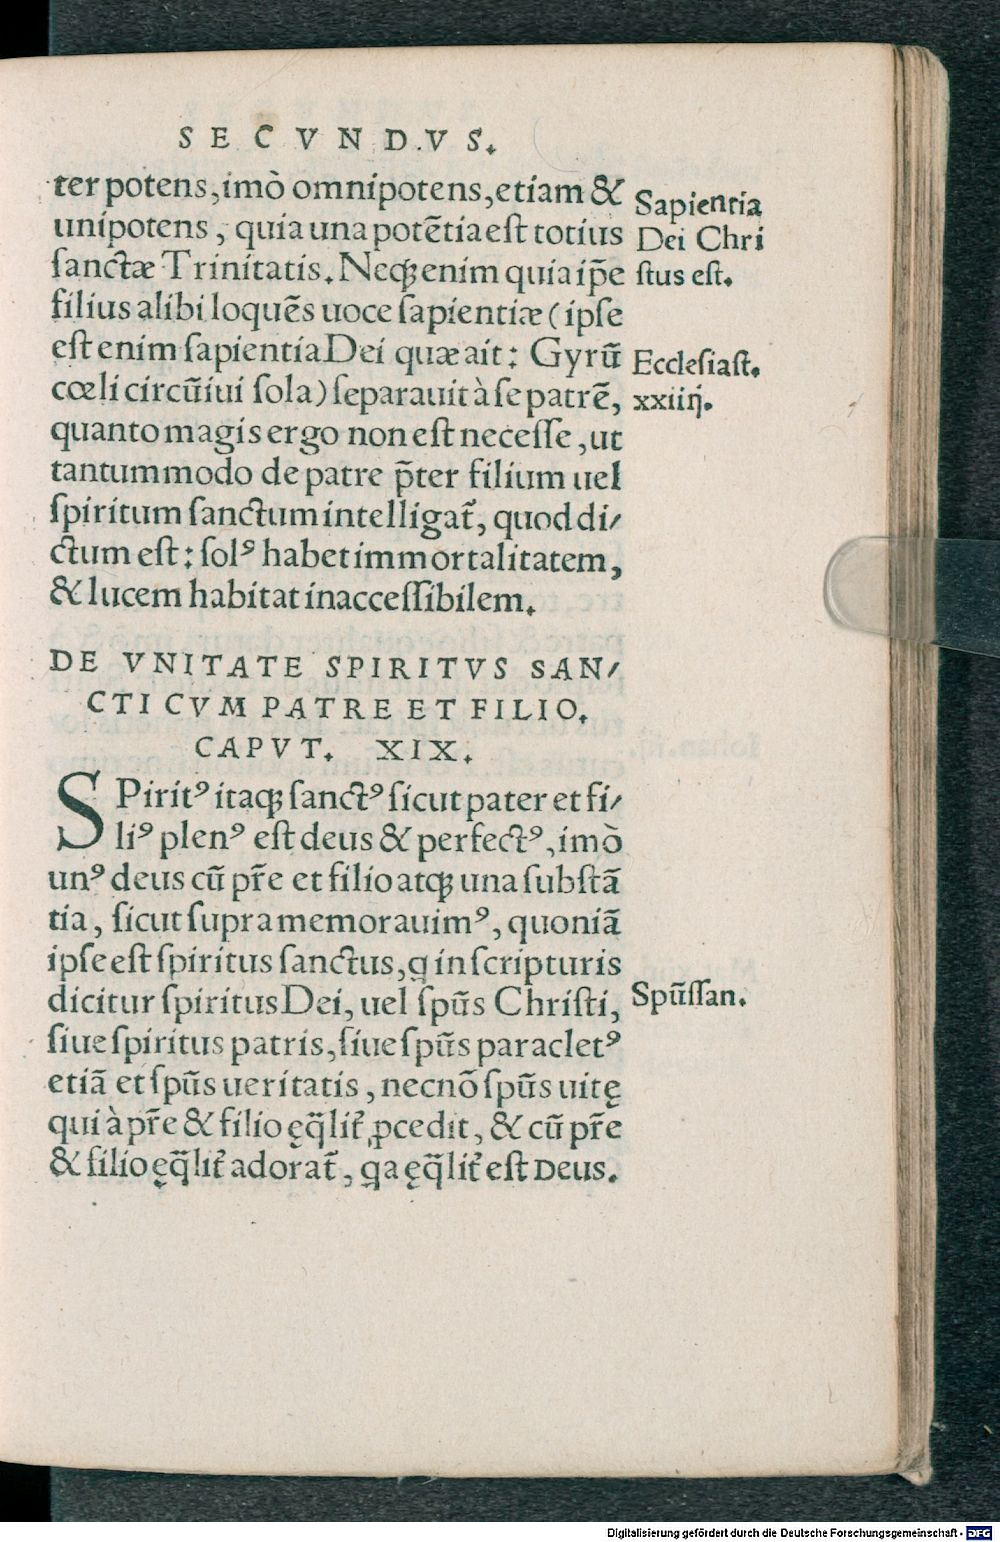 SECVNDVS.
ter potens, imò omnipotens, etiam &
unipotens, quia una potẽtia est totius
sanctæ Trinitatis. Neqꝫ enim quia ip̃e
filius alibi loquẽs uoce sapientiæ (ipse
est enim sapientia Dei quæ ait: Gyrũ
cœli circũiui sola) separauit à se patrẽ,
quanto magis ergo non est necesse, ut
tantummodo de patre p̃ter filium uel
spiritum sanctum intelligat᷑, quod di/
ctum est: solꝰ habet immortalitatem,
& lucem habitat inaccessibilem.
Sapientia
Dei Chri
stus est.
Ecclesiast.
xxiiij.
DE VNITATE SPIRITVS SAN/
CTI CVM PATRE ET FILIO.
CAPVT. XIX.
SPiritꝰ itaqꝫ sanctꝰ sicut pater et fi/
liꝰ plenꝰ est deus & perfectꝰ, imò
unꝰ deus cũ pr̃e et filio atqꝫ una substã
tia, sicut supra memorauimꝰ, quoniã
ipse est spiritus sanctus, q in scripturis
dicitur spiritus Dei, uel spũs Christi,
siue spiritus patris, siue spũs paracletꝰ
etiã et spũs ueritatis, necnõ spũs uitę
qui à pr̃e & filio ęq̃lit᷑ ꝓcedit, & cũ pr̃e
& filio ęq̃lit᷑ adorat᷑, qa ęq̃lit᷑ est Deus.
Spũssan.
Digitalisierung gefördert durch die Deutsche Forschungsgemeinschaft - DFG